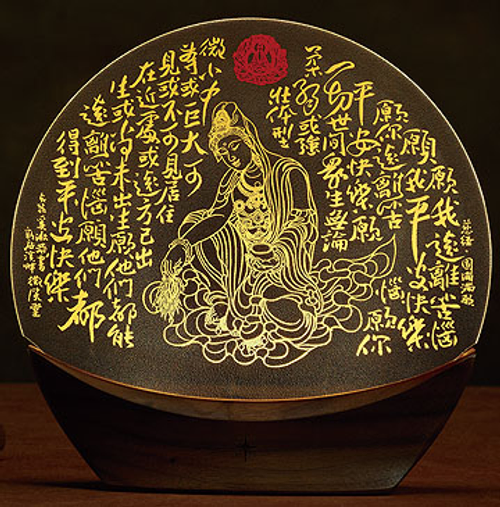 願我遠離苦惱
願我平安快樂
願你遠離苦
惱 願你
平安快樂 願
一切世間眾生無論
柔弱或強
壯体型
微小中
等或巨大可
見或不可見居住
在近處或遠方已出
生或尚未出生願他們都能
遠離苦惱願他們都
得到平安快樂